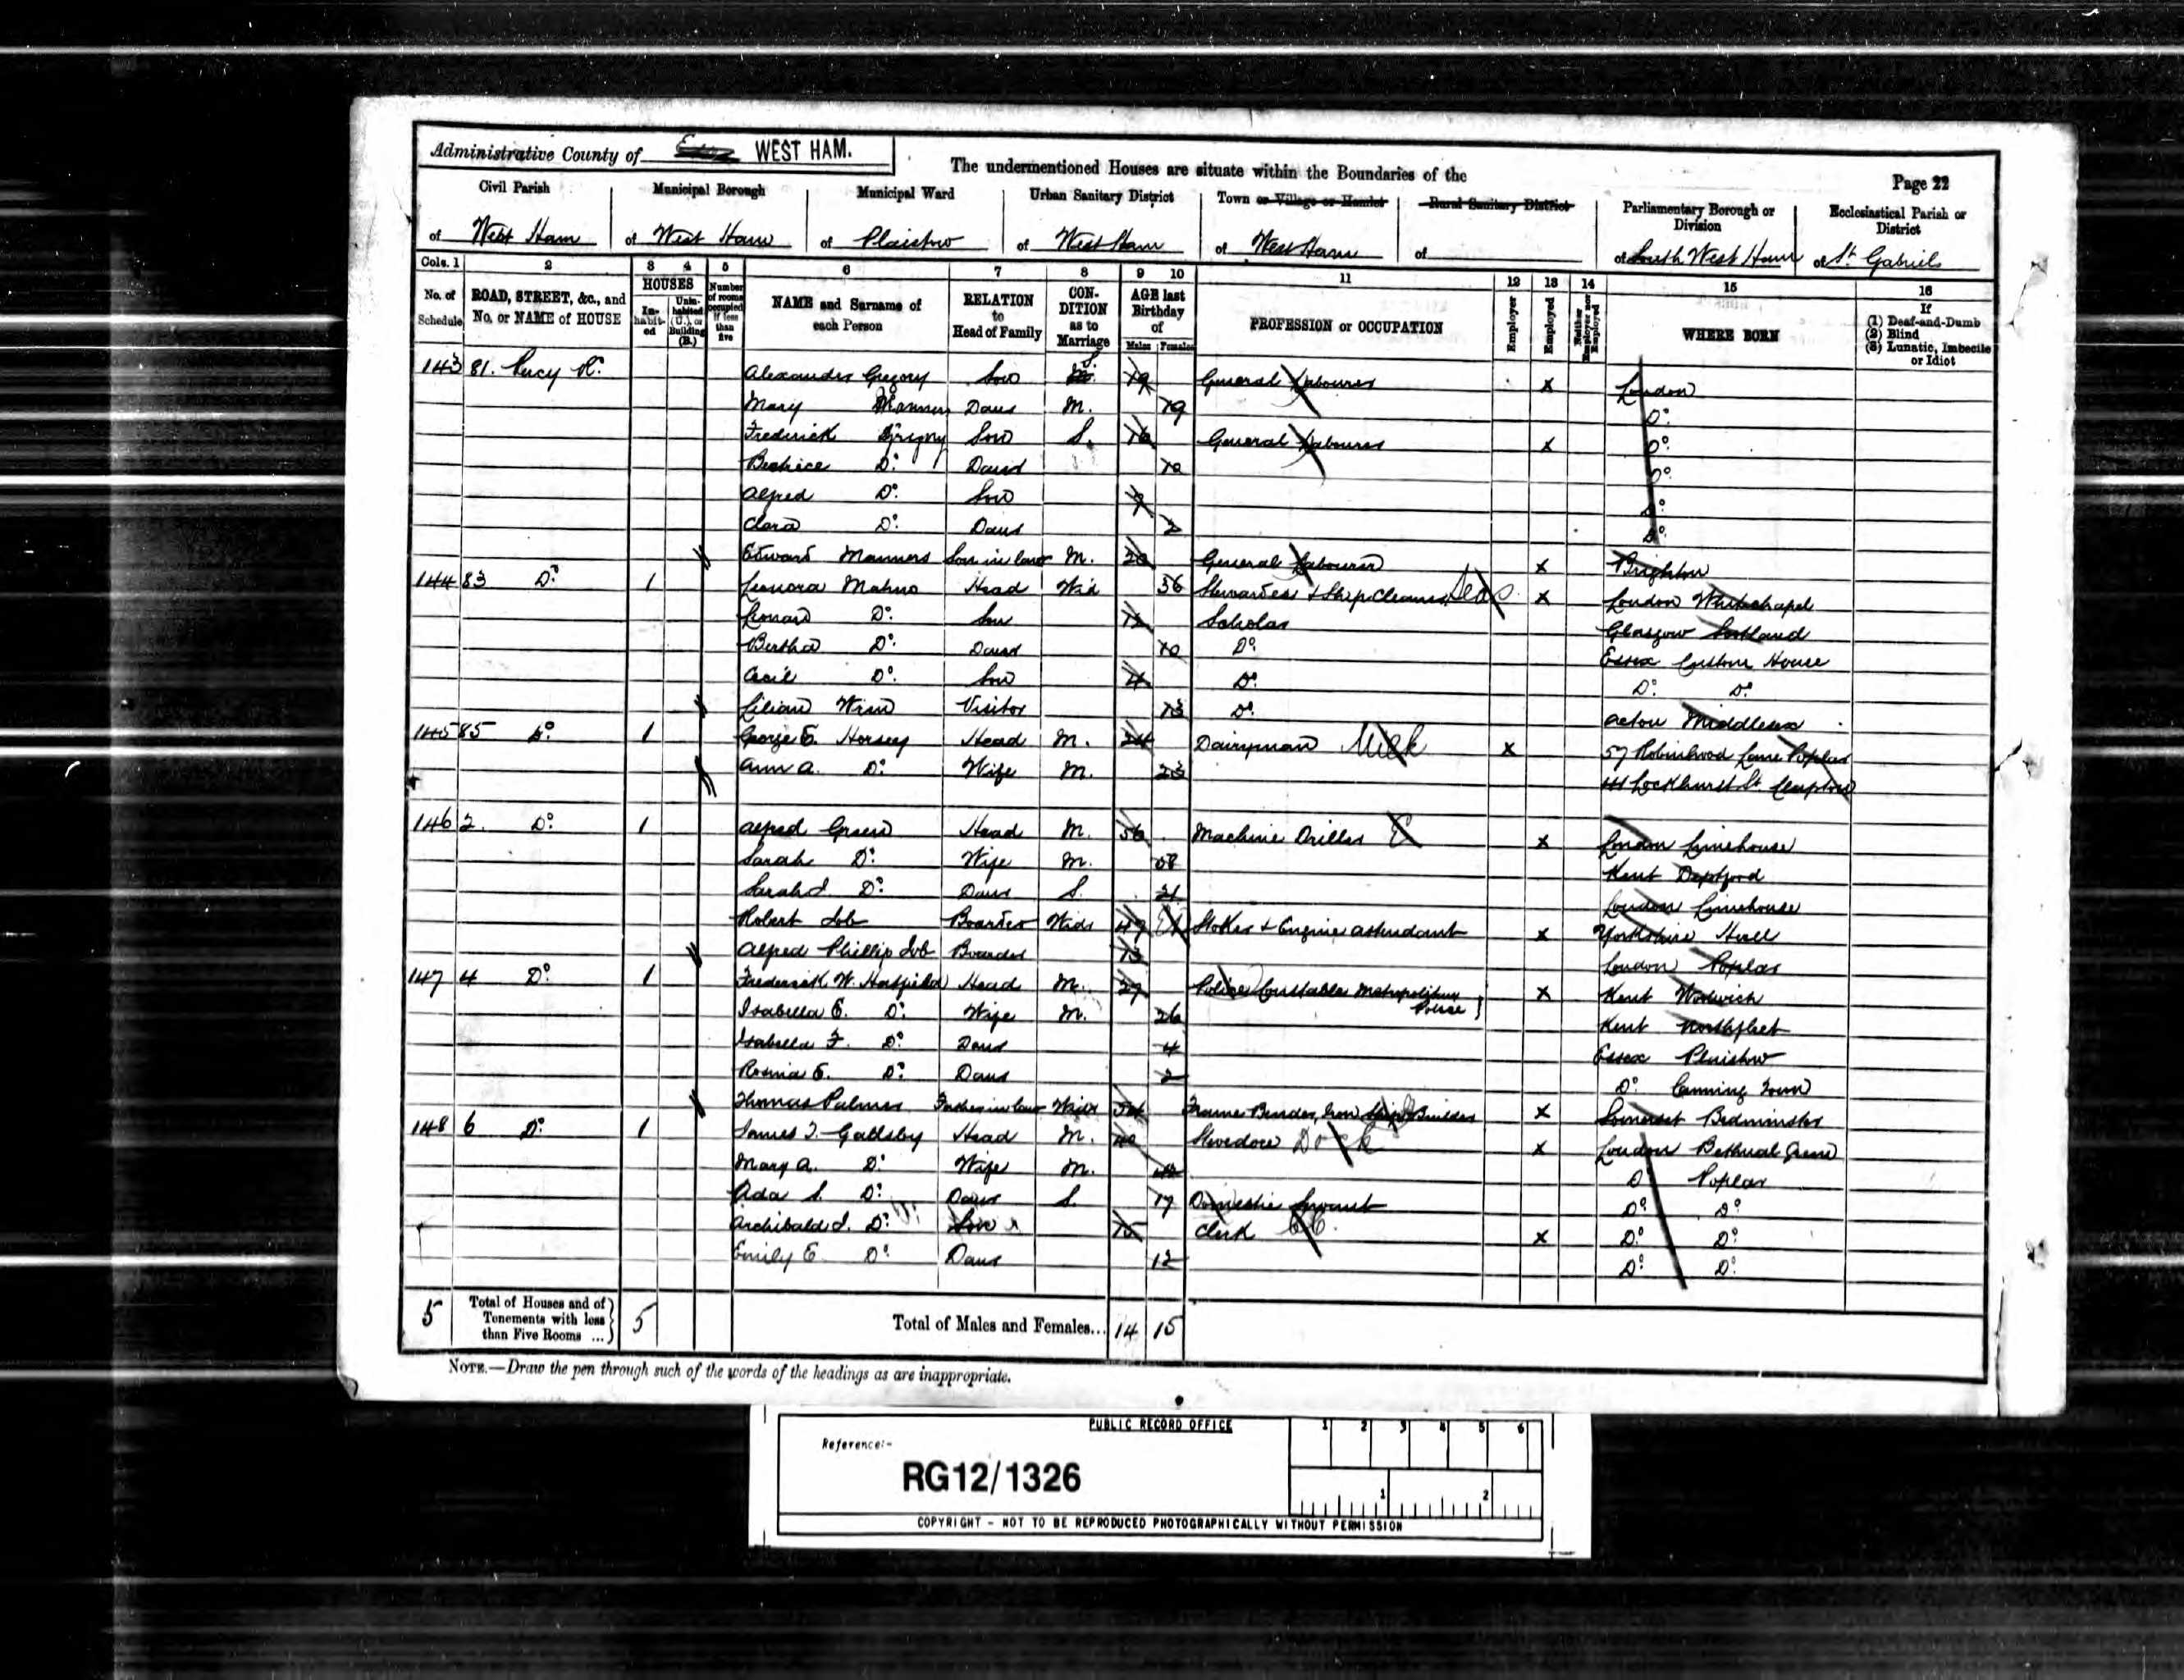 Administrative County of Essex WEST HAM.
The undermentioned Houses are situate within the Boundaries of the
Page 22
Civil Parish Municipal Borough Municipal Ward Urban Sanitary District Town or Village or Hamlet Rural Sanitary District Parliamentary Borough or Division Ecclesiastical Parish or District
of West Ham of West Ham of Plaistow of West Ham of West Ham of of South West Ham of St. Gabriels
Cols. 1 2 3 4 5 6 7 8 9 10 11 12 13 14 15 16
No. of Schedule ROAD, STREET, &c., and No. or NAME of HOUSE HOUSES In-habit-ed Unin-habited (U.), or Building (B.) Number of rooms occupied if less than five NAME and Surname of each Person RELATION to Head of Family CON-DITION as to Marriage AGE last Birthday of Males Females PROFESSION or OCCUPATION Employer Employed Neither Employer nor Employed WHERE BORN If (1) Deaf-and-Dumb (2) Blind (3) Lunatic, Imbecile or Idiot
143 81. Percy Rd. Alexander Gregory Son S. 19 General Labourer x London
Mary Manners Daur M. 19 Do.
Frederick Gregory Son S. 16 General Labourer x Do.
Beatrice Do. Daur 10 Do.
Alfred Do. Son 9 Do.
Clara Do. Daur 2 Do.
Edward Manners Son in law M. 20 General Labourer x Brighton
144 83 Do. 1 Leonora Mahno Head Wid 36 Stewardess & Ship Cleaner Sea S. x London Whitechapel
Leonard Do. Son 12 Scholar Glasgow Scotland
Bertha Do. Daur 10 Do. Essex Custom House
Cecil Do. Son 4 Do. Do. Do.
Lilian Visitor 13 Do. Acton Middlesex
145 85 Do. 1 George E. Horsey Head M. 24 Dairyman Milk x 57 Robinhood Lane Poplar
Ann A. Do. Wife M. 23 Lockhurst St. Clapton
146 2. Do. 1 Alfred Green Head M. 56 Machine Driller x London Limehouse
Sarah Do. Wife M. 58 Kent Deptford
Sarah J. Do. Daur S. 21 London Limehouse
Robert Job Boarder Widr 49 Stoker & Engine attendant x Yorkshire Hull
Alfred Phillip Job Boarder 13 London Poplar
147 4 Do. 1 Frederick W. Hatfield Head M. 29 Police Constable Metropolitan Police x Kent Woolwich
Isabella E. Do. Wife M. 26 Kent Northfleet
Isabella F. Do. Daur 4 Essex Plaistow
Rosina E. Do. Daur 2 Do. Canning Town
Thomas Palmer Father in law Widr 54 Frame Bender, Iron Ship Builder x Somerset Bedminster
148 6 Do. 1 James J. Gallsby Head M. 40 Stevedore Dock x London Bethnal Green
Mary A. Do. Wife M. Do Poplar
Ada S. Do. Daur S. 17 Domestic Servant Do. Do.
Archibald J. Do. Son 15 Clerk CC. x Do. Do.
Emily E. Do. Daur 12 Do. Do.
5 Total of Houses and of Tenements with less than Five Rooms ... 5 Total of Males and Females... 14 15
NOTE.—Draw the pen through such of the words of the headings as are inappropriate.
PUBLIC RECORD OFFICE
1 2 3 4 5 6
Reference:-
RG12/1326
1 2
COPYRIGHT - NOT TO BE REPRODUCED PHOTOGRAPHICALLY WITHOUT PERMISSION